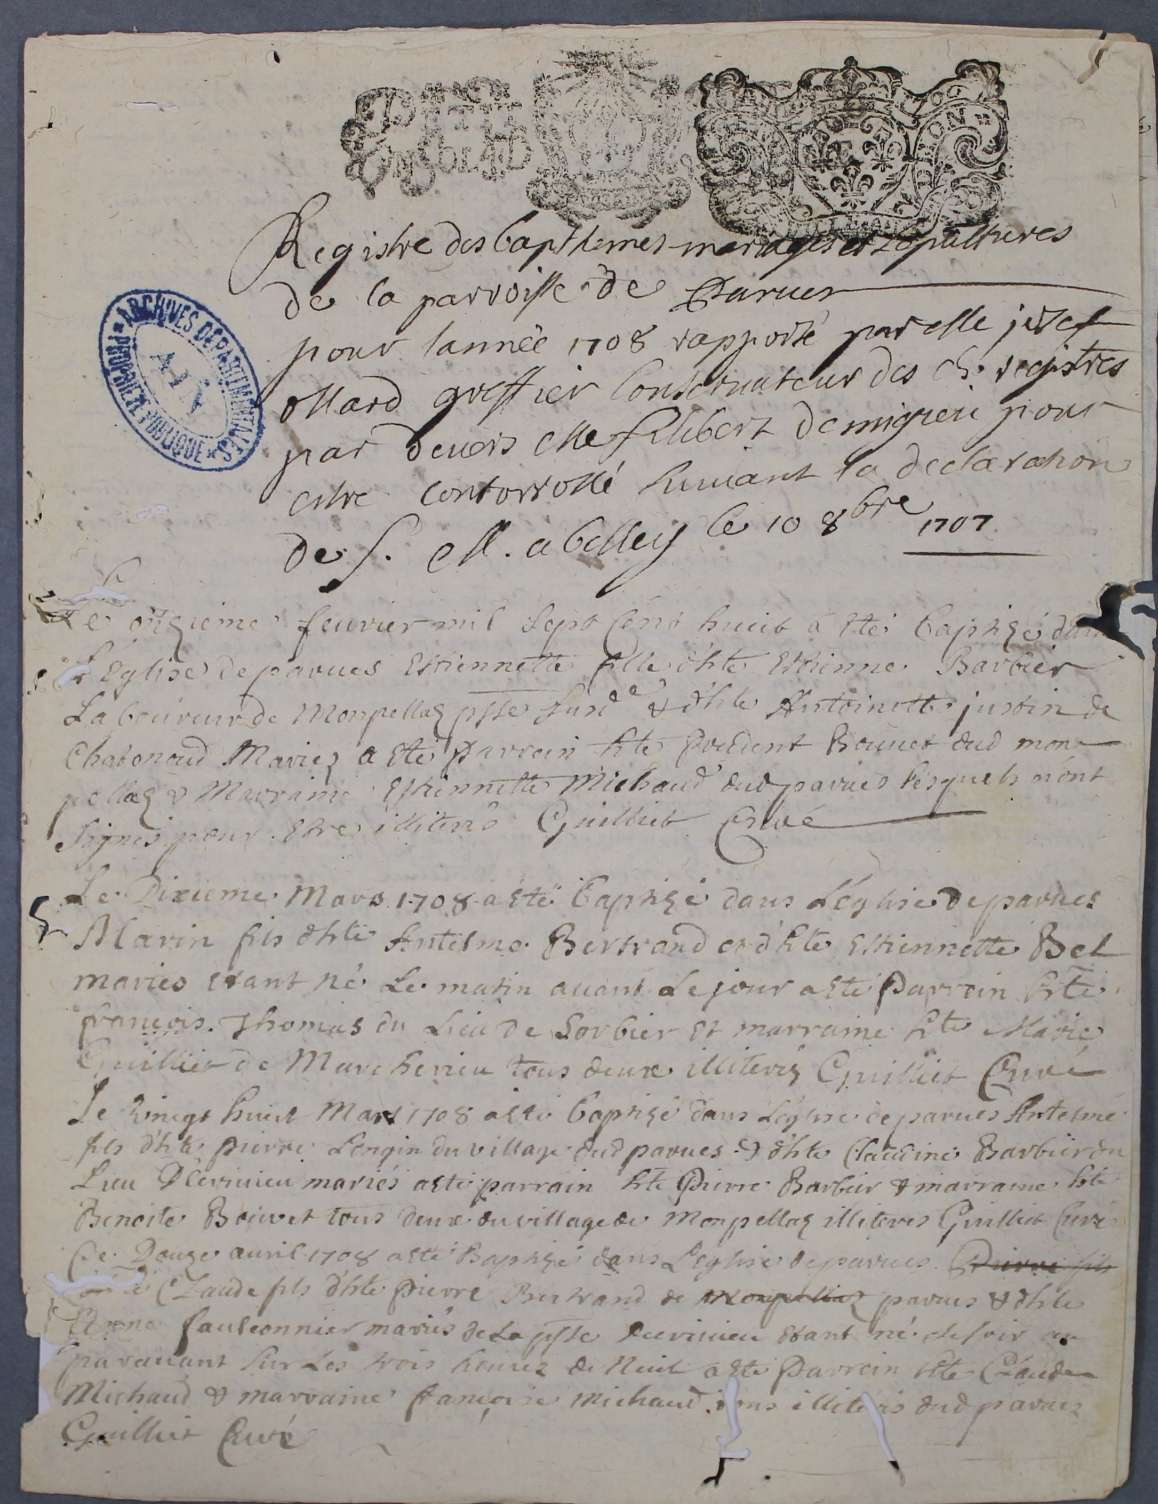 Registre des Baptesmes mariages et Sepultures
de la parroisse de Parves
pour l'année 1708 rapporté par Me josef
ollard greffier Conservateur des ch. registres
par devers Me filibert de migieu pour
estre controrollé suivant la declaration
de S. M. a belley le 10 8bre 1707
ARCHIVES DÉPARTEMENTALES
AIN
PROPRIÉTÉ PUBLIQUE
Le onzieme feuvrier mil sept cent huit a esté baptizé dans
L'Eglise de parves Estiennette fille d'hte Estienne Barbier
Laboureur de Monpellaz psse & d'hte Antoinette justin de
Chatonod Mariez a esté Parrein hte Boüuet dud mon
pellaz & Marraine Estiennette Michaud dud parves lesquels n'ont
signés pour estre illiterés Guilliet Curé
Le Dixieme Mars 1708 a esté baptizé dans L'église de parves
Marin fils d'hte Antelme Bertrand et d'hte Estiennette Bel
mariés estant né Le matin avant Le jour a esté Parrein hte
françois Thomas du Lieu de Sorbier et marraine hte Marie
Guilliet de Murcherieu tous deux illiterez Guilliet Curé
Le vingt huit Mars 1708 a esté baptizé dans L'église de parves Antelme
fils d'hte pierre Longin du village dud parves & d'hte Claudine Barbier du
Lieu mariés a esté parrain hte Pierre Barbier & marraine hte
Benoite Bouvet tous deux du village de Monpellaz illiteres Guilliet Curé
Le Douze avril 1708 a esté Baptizé dans L'eglise de parves Pierre fils
Claude fils d'hte Pierre Bertrand de Monpellaz parves & d'hte
fauleonnier mariés de La psse estant né le soir au
paravant sur Les trois heures de Nuit a esté Parrein hte Claude
Michaud & marraine françoise Michaud tous illiterés dud parves
Guilliet Curé